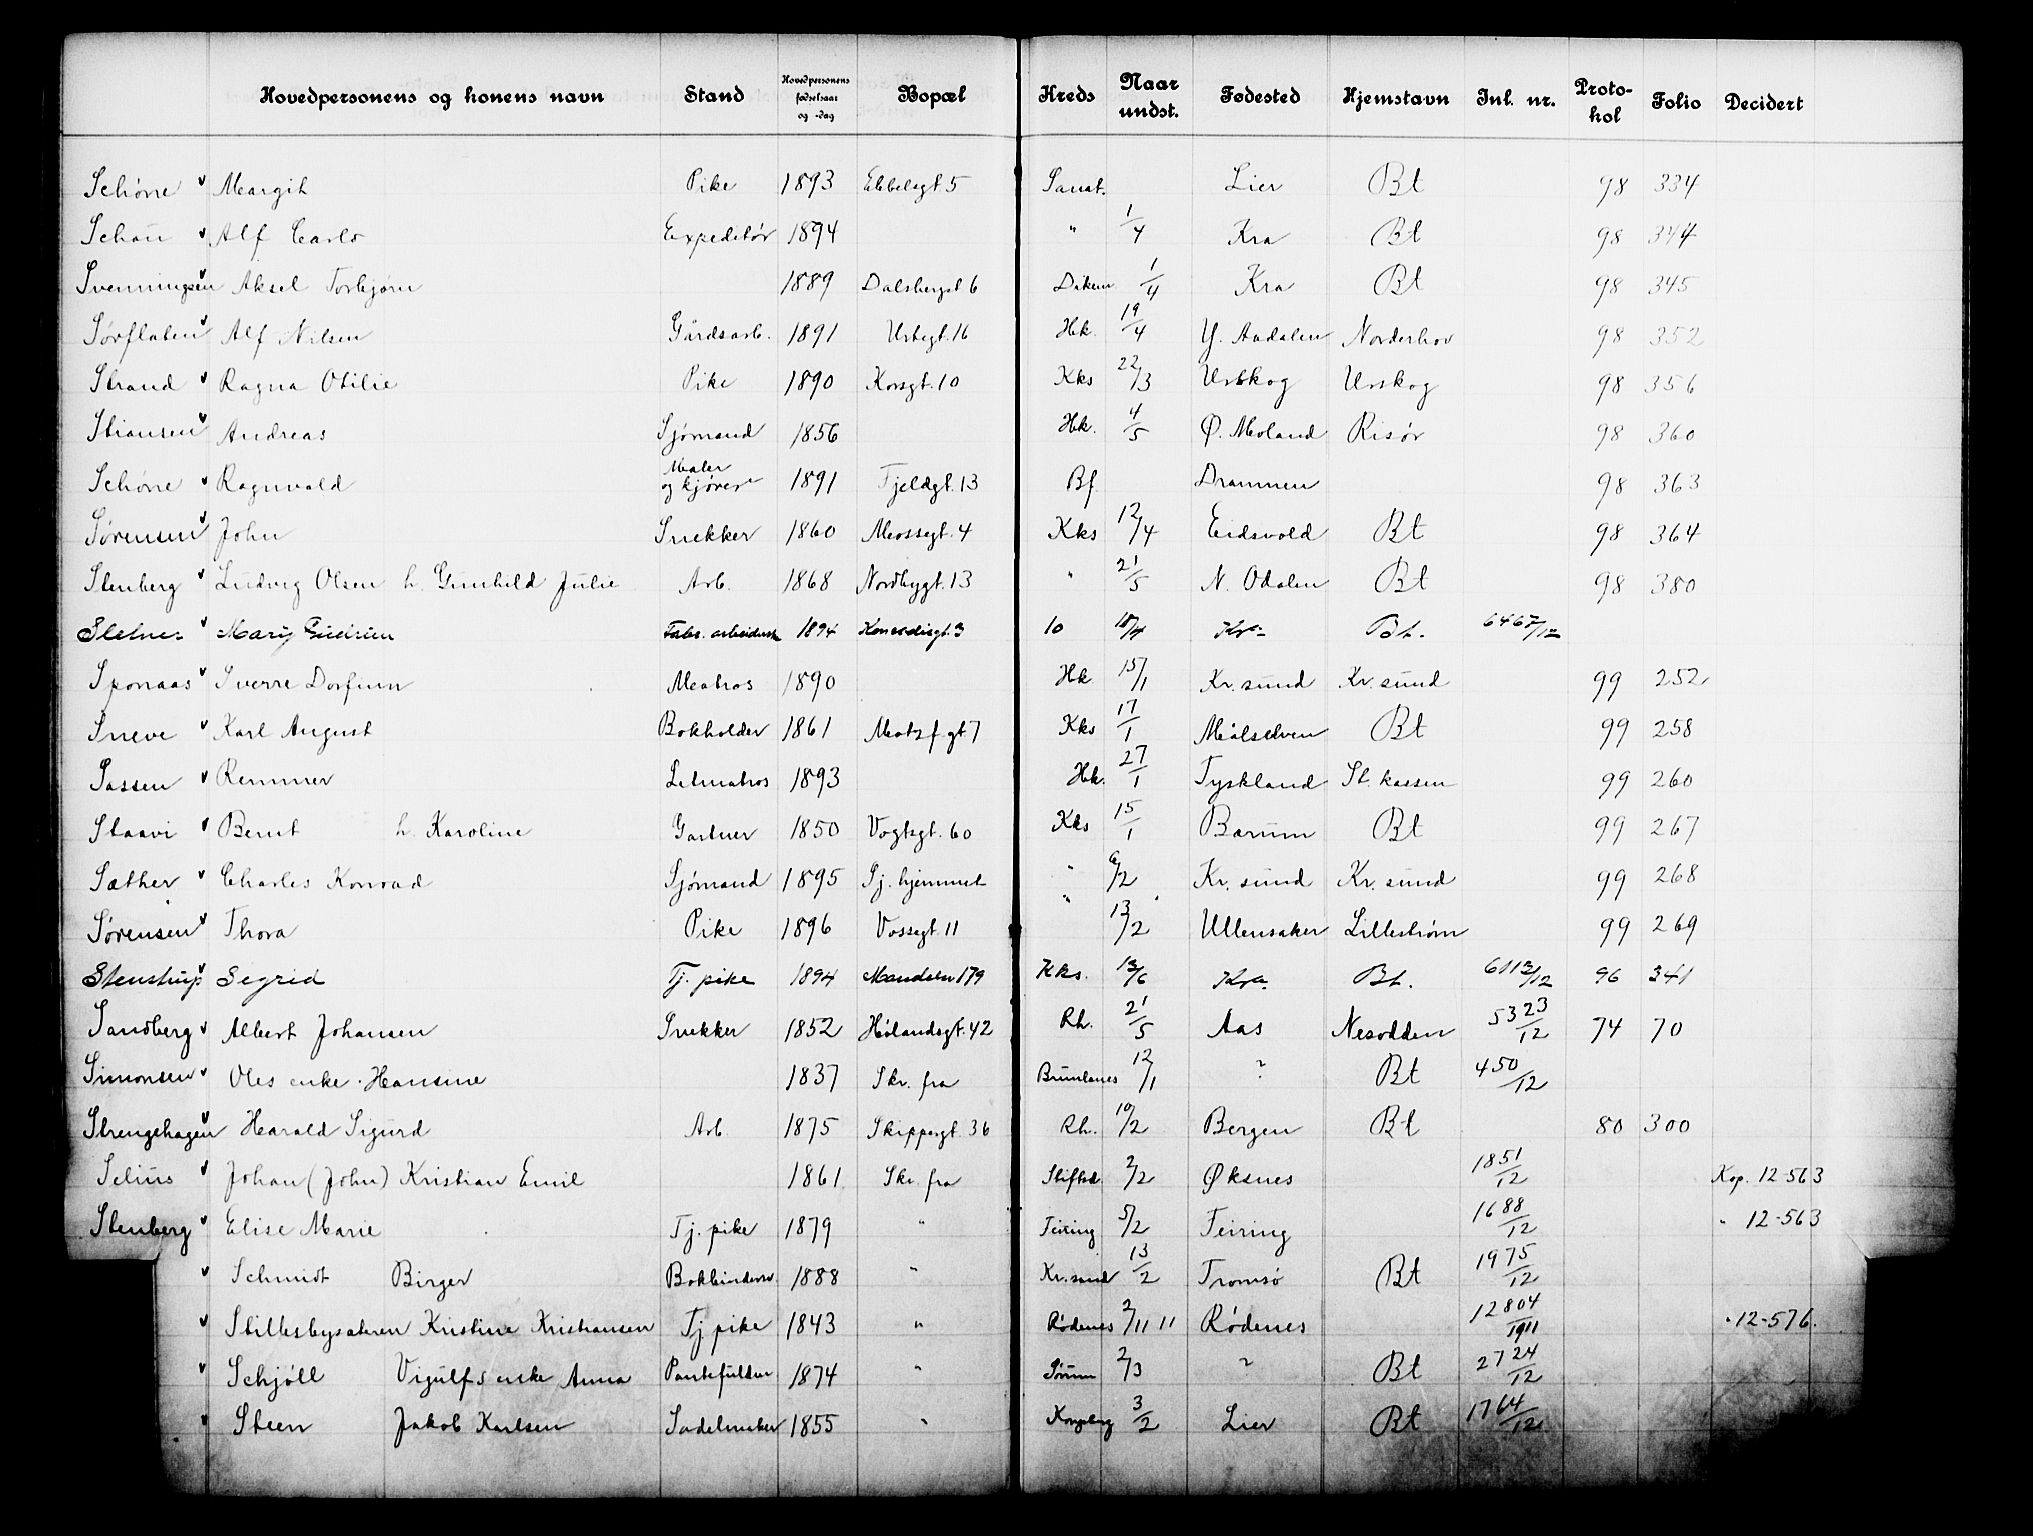 Hovedpersonens og konens navn Stand Hovedpersonens fødselsaar og -dag Bopæl Kreds Naar undst. Fødested Hjemstavn Inl. nr. Protokol Folio Decidert
Schøne Margit Pike 1893 Ebbelsgt. 5 Sanat. Lier Bt 98 334
Schou Alf Carlo Expeditør 1894 " 1/4 Kra Bt 98 344
Svenningsen Aksel Torbjørn 1889 Dalsbergst 6 Dikem 1/4 Kra Bt 98 345
Sørflaten Alf Nilsen Gårdsarb. 1891 Urtegt. 16 Hk. 19/4 Y. Aadalen Norderhov 98 352
Strand Ragna Otilie Pike 1890 Korsgt. 10 Kks 22/3 Urskog Urskog 98 356
Stiansen Andreas Sjømand 1856 Hk. 4/5 Ø. Moland Risør 98 360
Schøne Ragnvald Maler og kjører 1891 Fjeldgt. 13 Bf. Drammen 98 363
Sørensen John Snekker 1860 Mossegt. 4 Kks 12/4 Eidsvold Bt 98 364
Stenberg Ludvig Olsen h. Gunhild Julie Arb. 1868 Nordbygt. 13 " 21/5 N. Odalen Bt 98 380
Sletner Mary Gudrun Fabr. arbeiderske 1894 Konesdisgt. 3 10 18/4 Kra Bt. 6467/12
Sponaas Sverre Dorfinn Matros 1890 Hk 15/1 Kr. sund Kr. sund 99 252
Sneve Karl August Bokholder 1861 Motzf. gt 7 Kks 17/1 Målselven Bt 99 258
Sassen Remmer Letmatros 1893 Hk. 27/1 Tyskland St. kassen 99 260
Staavi Bernt h. Karoline Gartner 1850 Vogtsgt. 60 Kks 15/1 Bærum Bt 99 267
Sæther Charles Konrad Sjømand 1895 Sj. hjemmet " 6/2 Kr. sund Kr. sund 99 268
Sørensen Thora Pike 1896 Vossegt. 11 " 13/2 Ullensaker Lillestrøm 99 269
Stenstrup Segrid Tj. pike 1894 Mandals 179 Kks. 13/6 Kra. Bt. 6113/12 96 341
Sandberg Albert Johansen Snekker 1852 Hølandsgt. 42 Rh. 21/5 Aas Nesodden 5323/12 74 70
Simonsen Oles enke Hansine 1837 Skr. fra Brunlanes 12/1 ? Bt 450/12
Strengehagen Harald Sigurd Arb. 1875 Skippergt. 36 Rh. 10/2 Bergen Bt 80 300
Selius Johan (John) Kristian Emil 1861 Skr. fra Stifted 2/2 Øksnes 1851/12 Kop. 12-563
Stenberg Elise Marie Tj. pike 1879 " Feiring 5/2 Feiring 1688/12 " 12-563
Schmidt Birger Bokbinder 1888 " Kr.sund 13/2 Tromsø Bt 1975/12
Stillesbysæteren Kristine Kristiansen Tj pike 1843 " Rødenes 2/11 11 Rødenes 12804/1911 " 12-576.
Schjøll Vigulfs enke Anna 1874 " Sørum 2/3 ? Bt 2724/12
Steen Jakob Karlsen Sadelmaker 1855 " Kongsberg 3/2 Lier Bt 1764/12